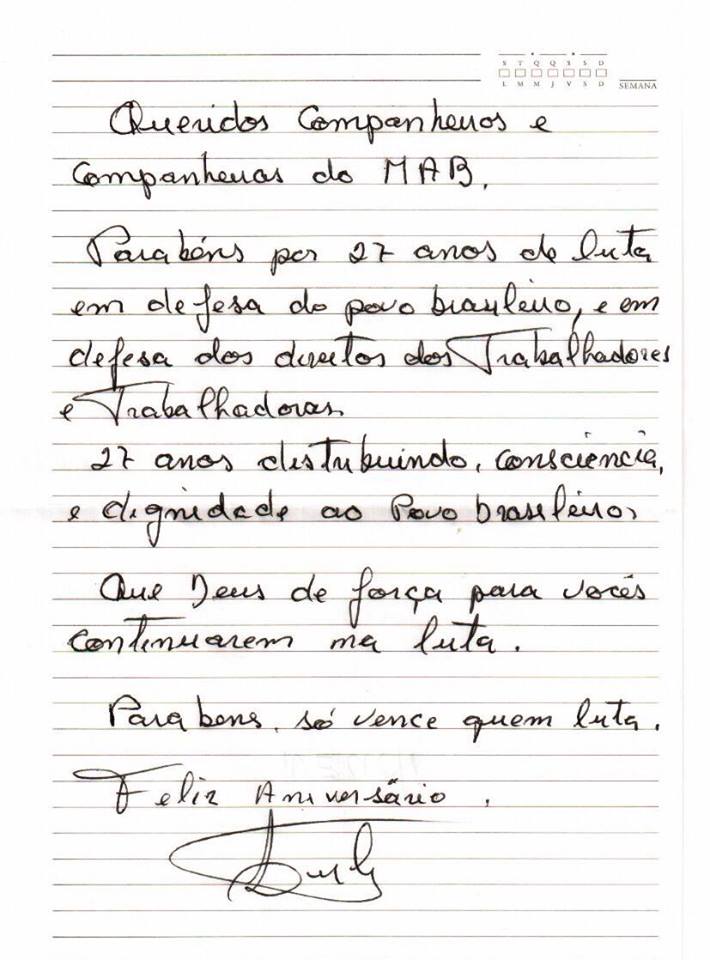 S T Q Q S S D
L M M J V S D
SEMANA
Queridos Companheiros e
Companheiras do MAB.
Parabéns por 27 anos de luta
em defesa do povo brasileiro, e em
defesa dos direitos dos Trabalhadores
e Trabalhadoras.
27 anos distribuindo, consciencia,
e dignidade ao Povo brasileiro,
Que Deus de força para vocês
continuarem na luta.
Parabens, só vence quem luta.
Feliz Aniversário.